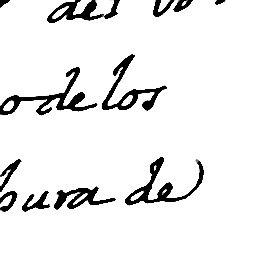 del
o de los
bura de